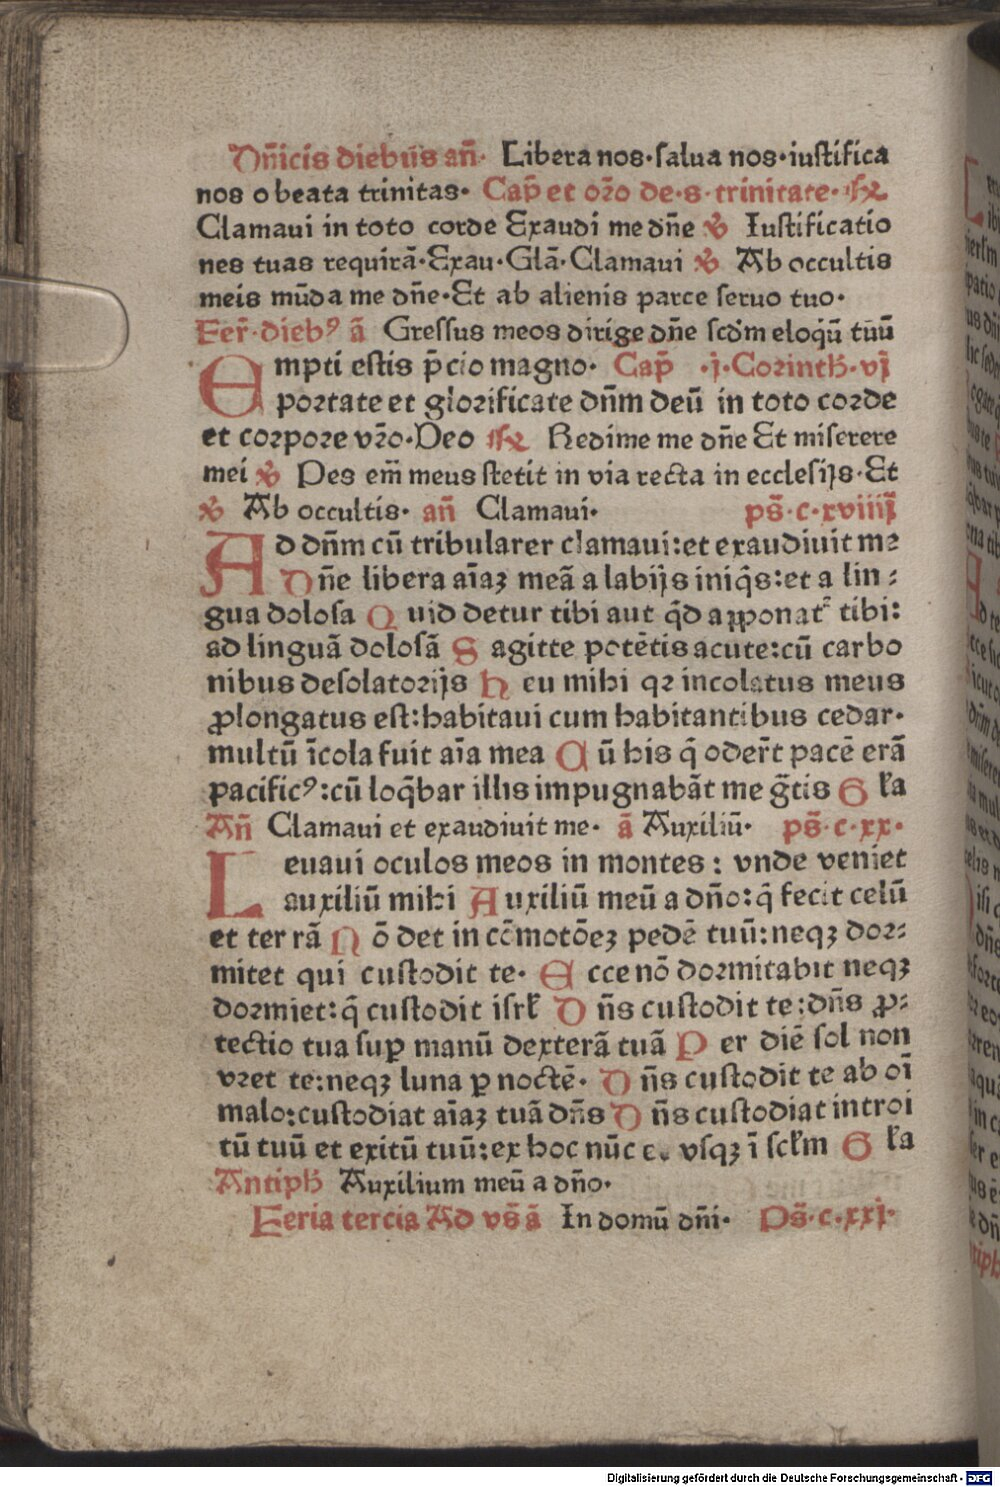 Dn̄icis diebus an̄· Libera nos·ſalua nos·iuſtifica
nos o beata trinitas· Cap̄ et oꝛ̄o de·s·trinitate· ꝶ
Clamaui in toto corde Exaudi me dn̄e ꝟ Iuſtificatio
nes tuas requirā·Exau·Glā·Clamaui ꝟ Ab occultis
meis mūda me dn̄e·Et ab alienis parce ſeruo tuo·
Fer̄·diebꝰ ā Greſſus meos dirige dn̄e ſcd̄m eloqū tuū
Empti eſtis p̄cio magno· Cap̄ ·j·Coꝛinth·vj
poꝛtate et gloꝛificate dn̄m deū in toto coꝛde
et coꝛpoꝛe vꝛ̄o·Deo ꝶ Redime me dn̄e Et miſerere
mei ꝟ Pes em̄ meus ſtetit in via recta in eccleſijs·Et
ꝟ Ab occultis· an̄ Clamaui· ps̄·c·xviiij
Ad dn̄m cū tribularer clamaui:et exaudiuit me
Dn̄e libera aīaꝫ meā a labijs iniq̄s:et a lin⸗
gua doloſa Quid detur tibi aut q̄d apponat᷑ tibi:
ad linguā doloſā Sagitte potētis acute:cū carbo
nibus deſolatoꝛijs Heu mihi qꝛ incolatus meus
ꝓlongatus eſt:habitaui cum habitantibus cedar·
multū īcola fuit aīa mea Cū his q̄ oder̄t pacē erā
pacificꝰ:cū loq̄bar illis impugnabāt me gr̄tis Gꝉa
An̄ Clamaui et exaudiuit me· ā Auxiliū· ps̄·c·xx·
Leuaui oculos meos in montes: vnde veniet
auxiliū mihi Auxiliū meū a dn̄o:q̄ fecit celū
et terrā Nō det in cōmotōeꝫ pedē tuū:neqꝫ doꝛ⸗
mitet qui cuſtodit te· Ecce nō doꝛmitabit neqꝫ
doꝛmiet:q̄ cuſtodit iſrꝉ Dn̄s cuſtodit te:dn̄s ꝓ⸗
tectio tua ſuꝑ manū dexterā tuā Per diē ſol non
vꝛet te:neqꝫ luna ꝑ noctē· Dn̄s cuſtodit te ab oī
malo:cuſtodiat aīaꝫ tuā dn̄s Dn̄s cuſtodiat introi
tū tuū et exitū tuū:ex hoc nūc et vſqꝫ ī ſcꝉm Gꝉa
Antiph Auxilium meū a dn̄o·
Feria tercia Ad vs̄ ā In domū dn̄i· Ps̄·c·xxj·
Digitalisierung gefördert durch die Deutsche Forschungsgemeinschaft - DFG